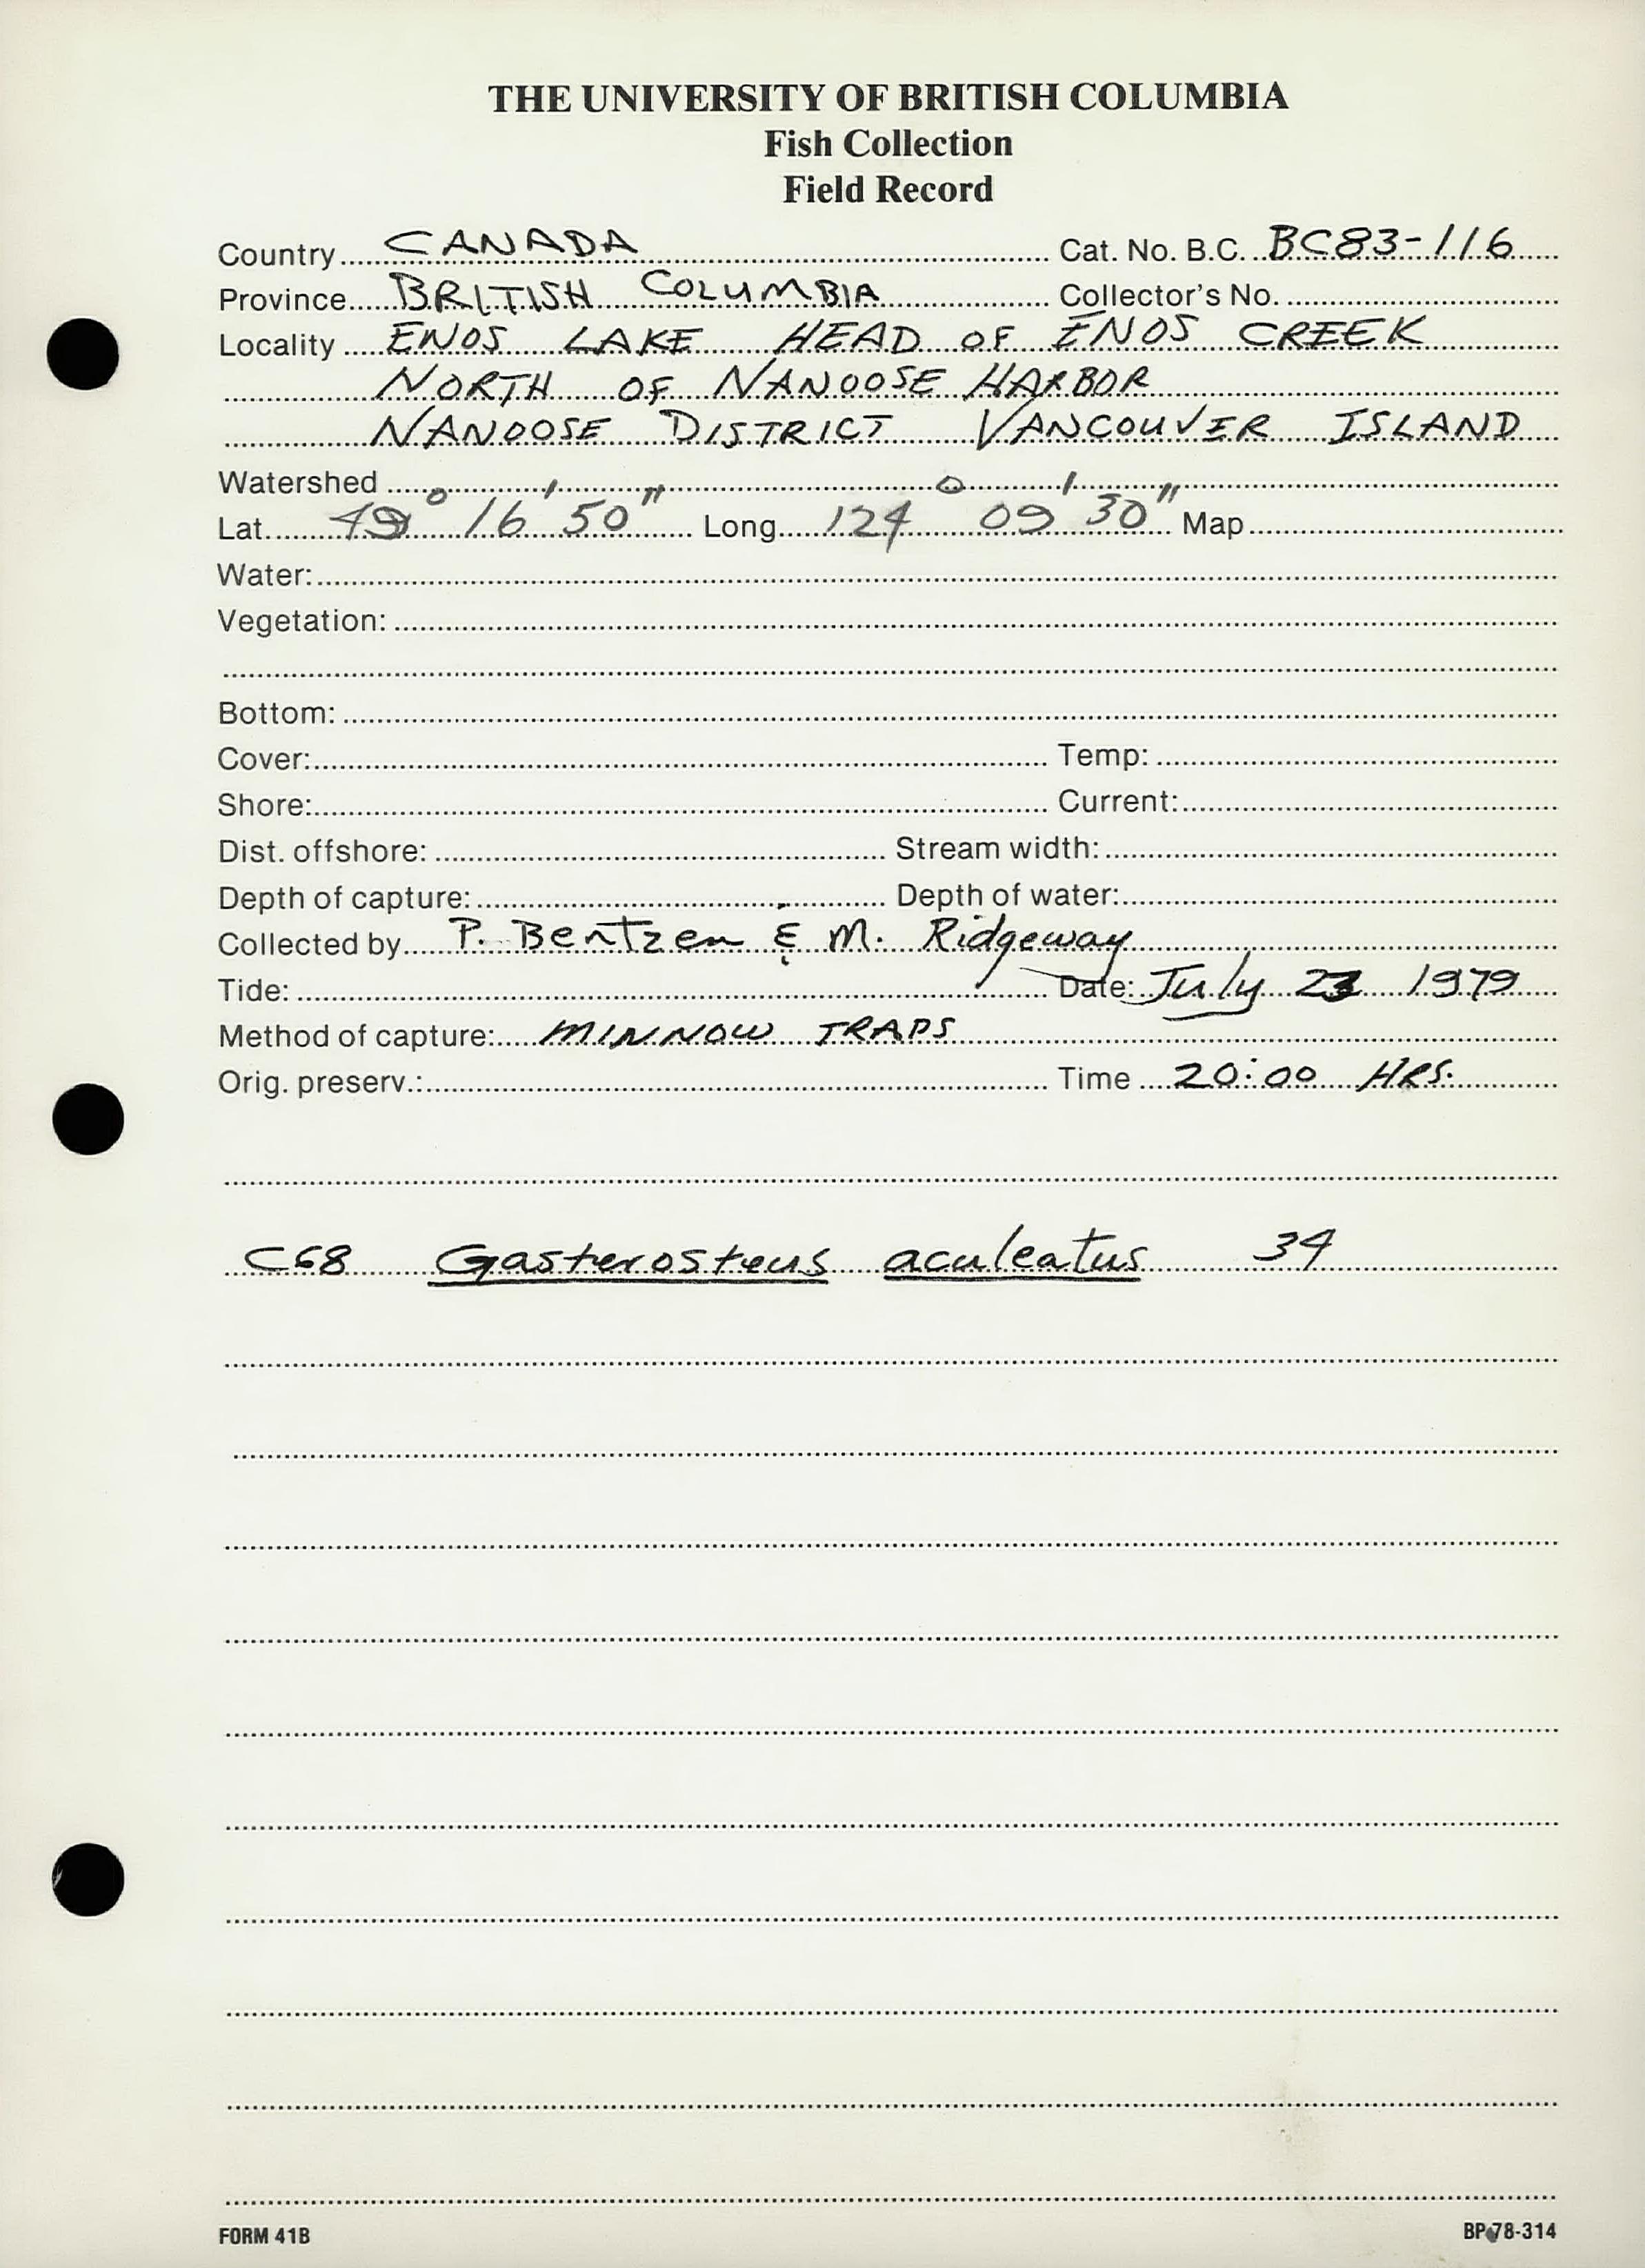 THE UNIVERSITY OF BRITISH COLUMBIA
Fish Collection
Field Record
Country CANADA Cat. No. B.C. BC83-116
Province BRITISH COLUMBIA Collector's No.
Locality ENOS LAKE HEAD OF ENOS CREEK
NORTH OF NANOOSE HARBOR
NANOOSE DISTRICT VANCOUVER ISLAND
Watershed
Lat. 49° 16' 50" Long. 124° 09' 30" Map
Water:
Vegetation:
Bottom:
Cover: Temp:
Shore: Current:
Dist. offshore: Stream width:
Depth of capture: Depth of water:
Collected by P. Bentzen & M. Ridgeway
Tide: Date: July 23 1979
Method of capture: MINNOW TRAPS
Orig. preserv.: Time 20:00 HRS.
C68 Gasterosteus aculeatus 34
FORM 41B BP 78-314